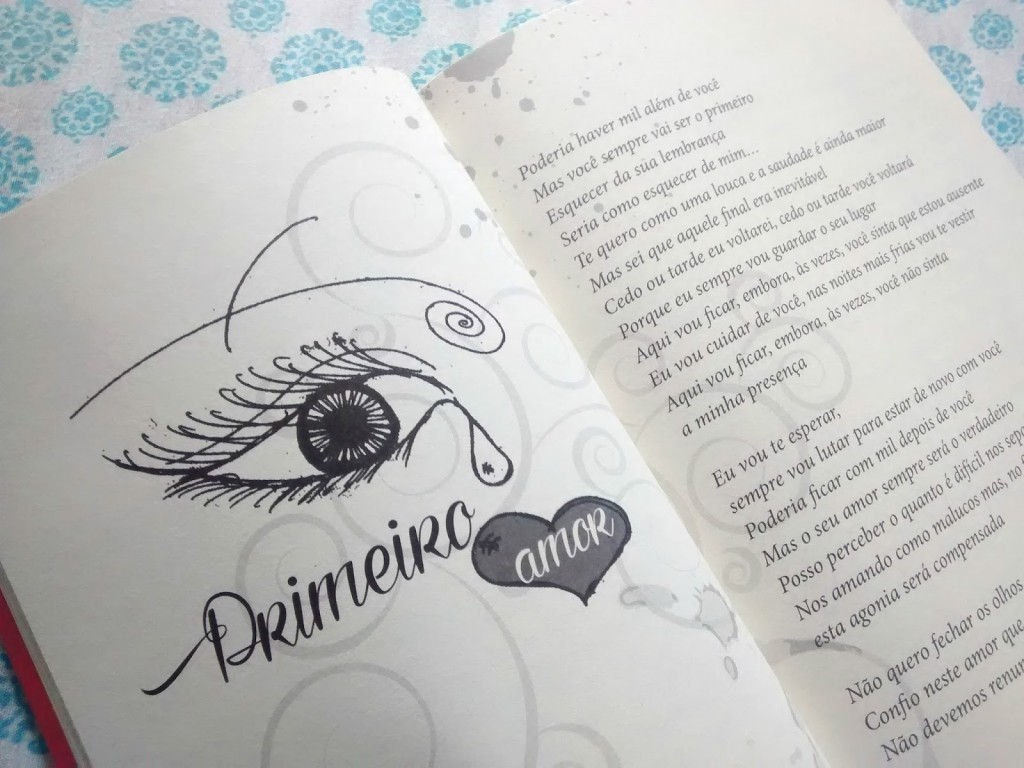 Primeiro
amor
Poderia haver mil além de você
Mas você sempre vai ser o primeiro
Esquecer da sua lembrança
Seria como esquecer de mim...
Te quero como uma louca e a saudade é ainda maior
Mas sei que aquele final era inevitável
Cedo ou tarde eu voltarei, cedo ou tarde você voltará
Porque eu sempre vou guardar o seu lugar
Aqui vou ficar, embora, às vezes, você sinta que estou ausente
Eu vou cuidar de você, nas noites mais frias vou te vestir
Aqui vou ficar, embora, às vezes, você não sinta
a minha presença
Eu vou te esperar,
sempre vou lutar para estar de novo com você
Poderia ficar com mil depois de você
Mas o seu amor sempre será o verdadeiro
Posso perceber o quanto é difícil nos
Nos amando como malucos mas, no
esta agonia será compensada
Não quero fechar os olhos
Confio neste amor que
Não devemos